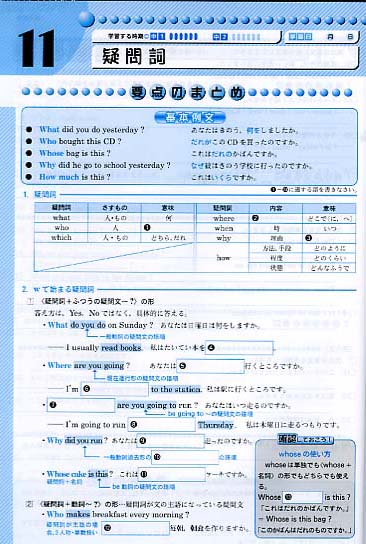 学習する時期 中1 中2 学習日 月 日
11 疑問詞
要点のまとめ
基本例文
● What did you do yesterday ? あなたはきのう、何をしましたか。
● Who bought this CD ? だれがこの CD を買ったのですか。
● Whose bag is this ? これはだれのかばんですか。
● Why did he go to school yesterday ? なぜ彼はきのう学校に行ったのですか。
● How much is this ? これはいくらですか。
1. 疑問詞
疑問詞 さすもの 意味 疑問詞 内容 意味
what 人・もの 何 where ❷ どこで(に、へ)
who 人 ❶ when 時 いつ
which 人・もの どちら、だれ why 理由 ❸
how 方法、手段 どのように
程度 どのくらい
状態 どんなふうで
2. w で始まる疑問詞
① 〈疑問詞+ふつうの疑問文〜?〉の形
答え方は、Yes、No ではなく、具体的に答える。
・What do you do on Sunday ? あなたは日曜日は何をしますか。
一般動詞の疑問文の語順
── I usually read books. 私はたいてい本を❹
・Where are you going ? あなたは❺ 行くところですか。
現在進行形の疑問文の語順
── I'm ❻ to the station. 私は駅に行くところです。
・❼ are you going to run ? あなたはいつ走るのですか。
be going to 〜の疑問文の語順
── I'm going to run ❽ Thursday. 私は木曜日に走るつもりです。
・Why did you run ? あなたは❾ 走ったのですか。
一般動詞過去形の❿ の語順
・Whose cake is this ? これは⓫ ケーキですか。
疑問詞+名詞 be 動詞の疑問文の語順
② 〈疑問詞+動詞〜?〉の形…疑問詞が文の主語になっている疑問文
・Who makes breakfast every morning ?
疑問詞が主語の場合、3人称・単数扱い ⓬ 毎朝、朝食を作りますか。
確認しておこう!
whose の使い方
whose は単独でも〈whose+名詞〉の形でもどちらでも使える。
Whose is this ?
「これはだれのかばんですか。」
= Whose is this bag ?
「このかばんはだれのものですか。」